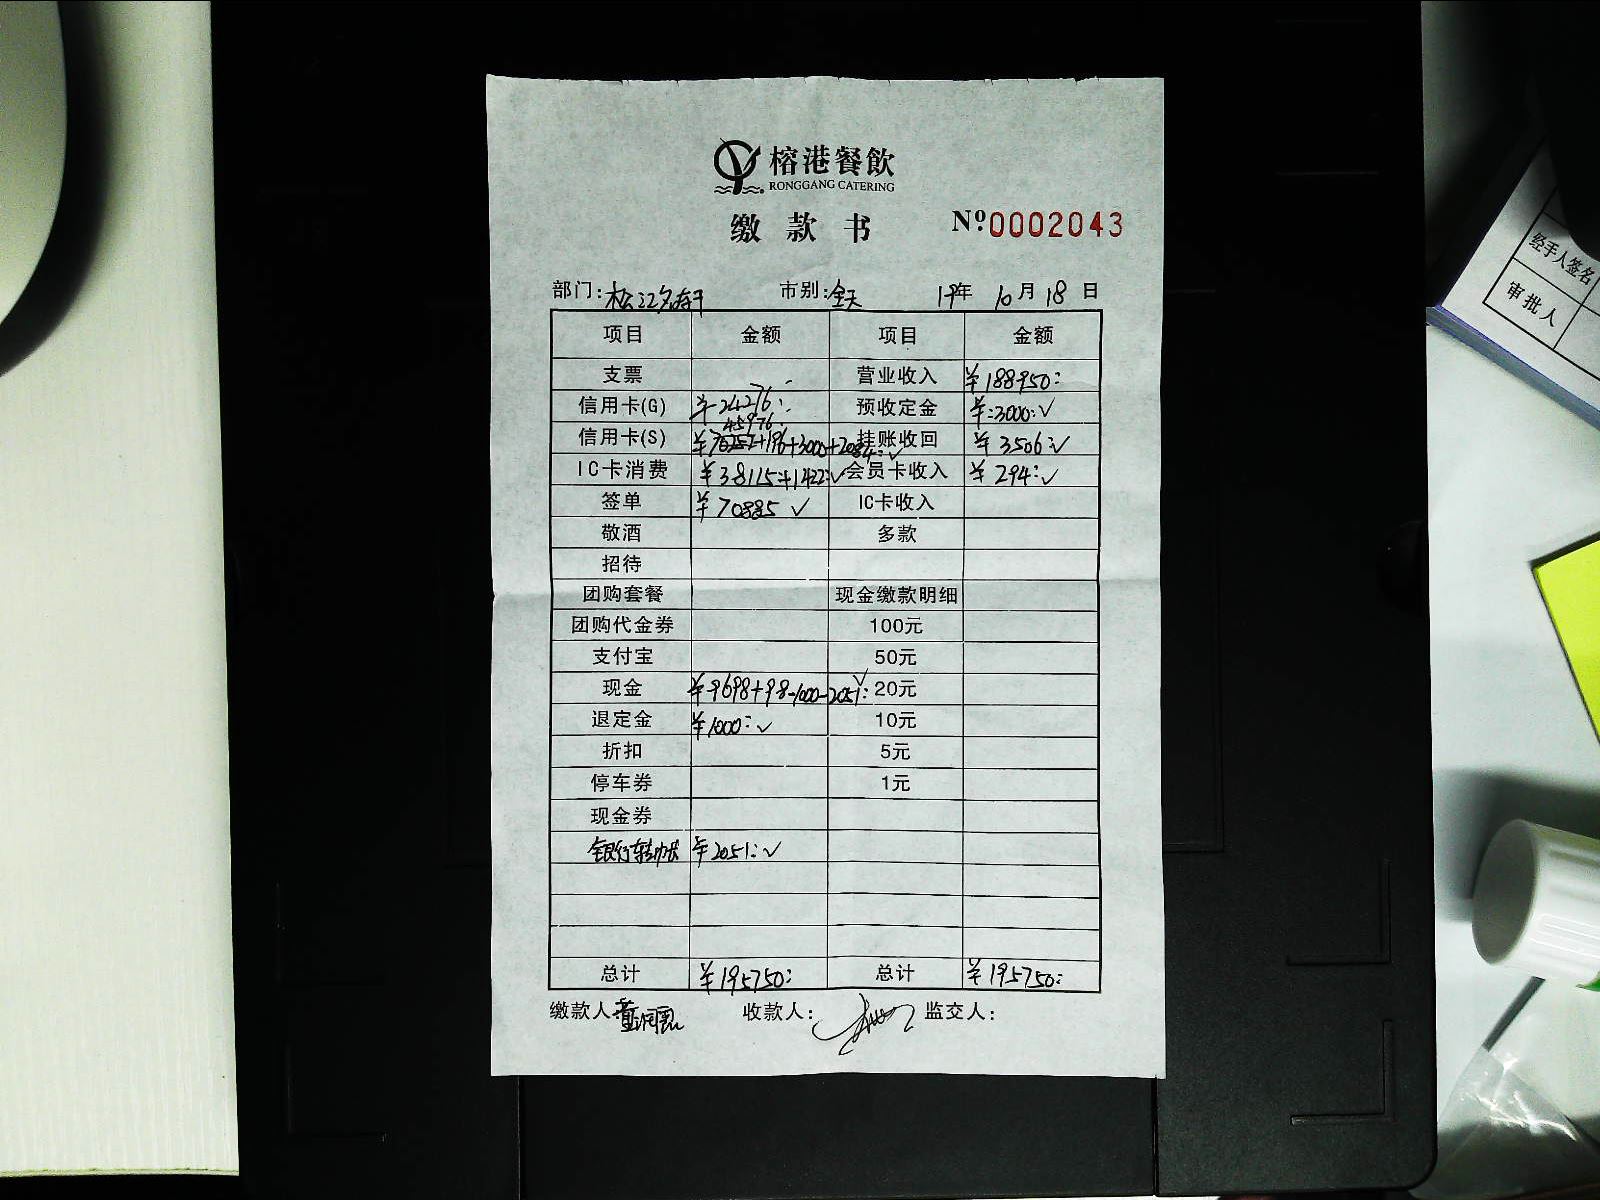 榕港餐飲
RONGGANG CATERING
缴款书 Nº 0002043
部门: 松江名轩 市别: 全天 19年 10月 18日
项目 金额 项目 金额
支票 营业收入 ¥188950:
信用卡(G) ¥24276: 预收定金 ¥:3000:✓
45976:
信用卡(S) ¥70252+196+3000+2084:✓ 挂账收回 ¥3506:✓
IC卡消费 ¥38115+1422:✓ 会员卡收入 ¥294:✓
签单 ¥70885 ✓ IC卡收入
敬酒 多款
招待
团购套餐 现金缴款明细
团购代金券 100元
支付宝 50元
现金 ¥9698+98-1000-2051:✓ 20元
退定金 ¥1000:✓ 10元
折扣 5元
停车券 1元
现金券
银行转帐 ¥2051:✓
总计 ¥195750: 总计 ¥195750:
缴款人: 收款人: 监交人:
经手人签名
审批人